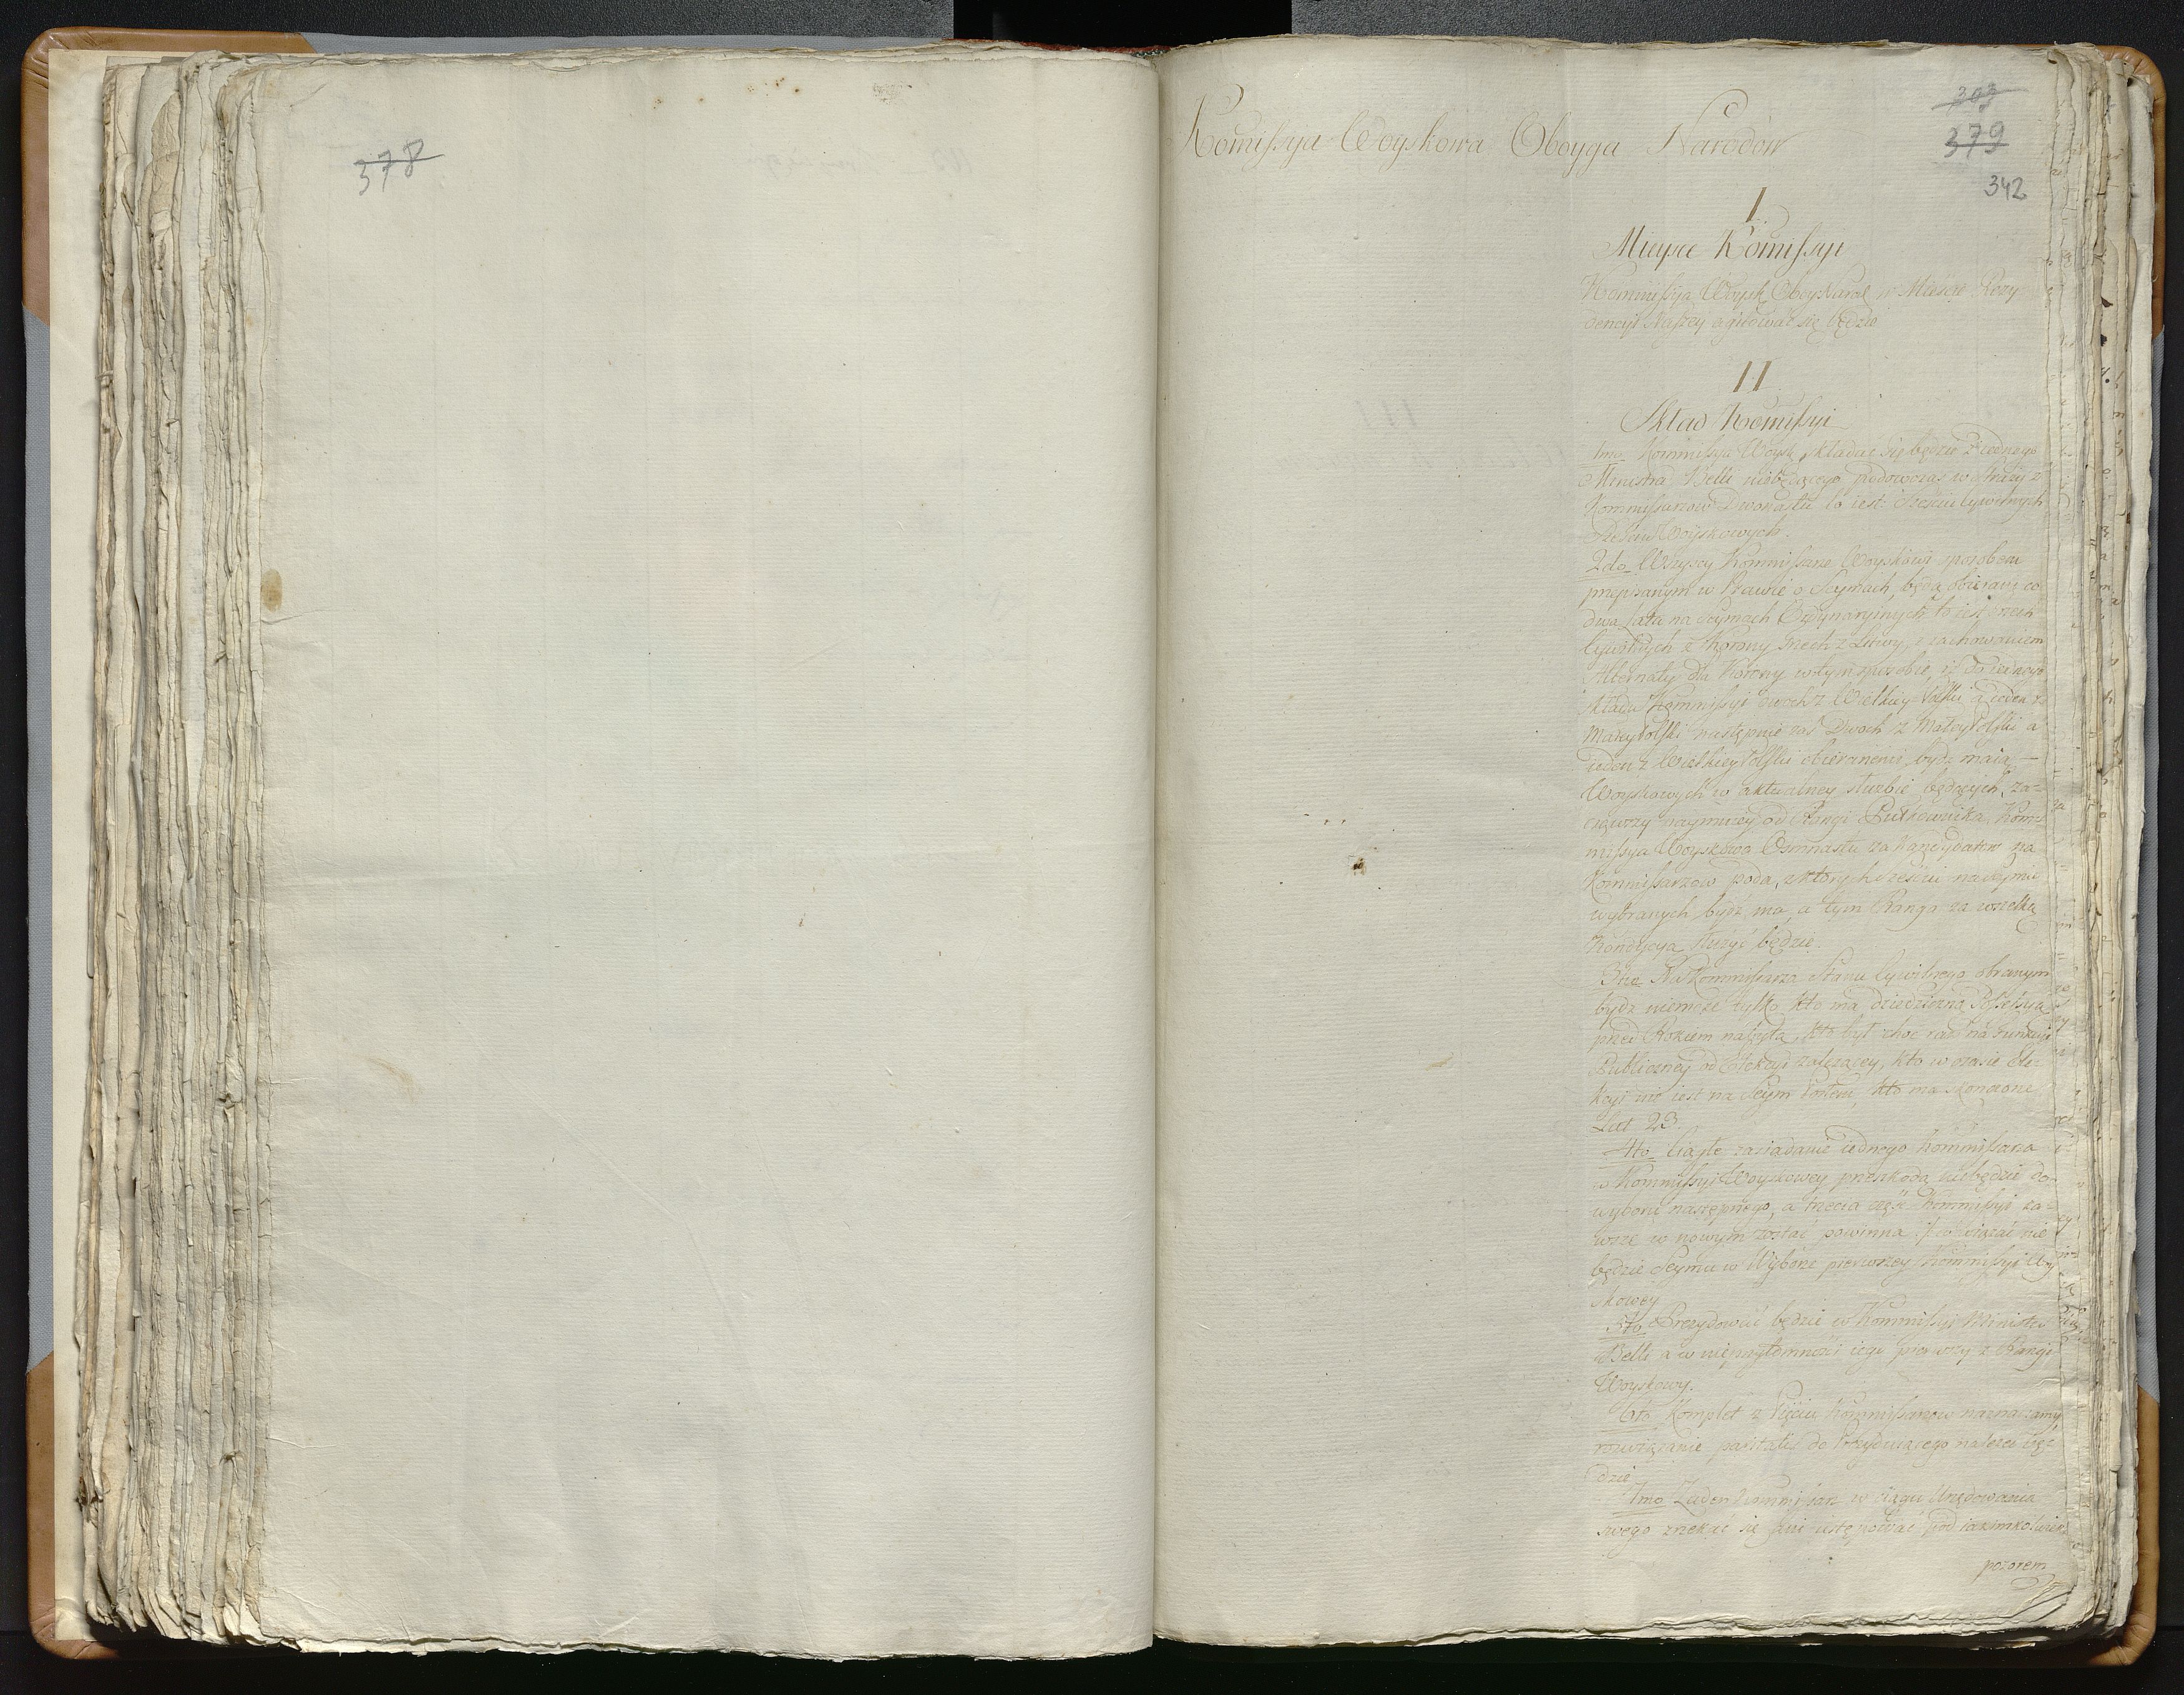 378
303
379
342
Komissya Woyskowa Oboyga Narodow
I
Mieysce Komissyi
Kommissya Woysk. Oboy. Narod. w Miescie Rezy
dencyi Naszey agitować się będzie
II
Skład Komissyi
1mo Kommissya Woysk. składać się będzie z iednego
Ministra Belli niebędącego podowczas w straży z
Kommissarzow Dwonastu to iest: sześciu Cywilnych
Sześciu Woyskowych.
2do Wszyscy Kommissarze Woyskowi sposobem
przepisanym w Prawie o Seymach, będą obierani co
dwa lata na Seymach Ordynaryinych to iest trzech
Cywilnych z Korony trzech z Litwy, z zachowaniem
Alternaty dla Korony w tym sposobie, iż do iednego
składu Kommissyi dwoch z Wielkiey Polski a ieden z
Małeypolski następnie zaś Dwoch z Małey Polski a
ieden z Wielkiey Polski obieranemi bydź maią —
Woyskowych w aktualney służbie będących, za-
cząwszy naymniey od Rangi Pułkownika Kom-
missya Woyskowa Osmnastu za Kandydatow na
Kommissarzow poda, z ktorych sześciu na Seymie
wybranych bydź ma, a tym Ranga za wszelką
Kondycyą służyć będzie.
3tio Na Kommissarza Stanu Cywilnego obranym
bydź niemoże tylko kto ma dziedziczną Possessyą
przed Rokiem nabytą, kto był choć raz na funkcyi
Publiczney od Elekcyi zależącey, kto w czasie Ele-
kcyi nie iest na Seym Posłem, kto ma skonczone
Lat 23.
4to Ciągłe zasiadanie iednego Kommissarza
w Kommissyi Woyskowey przeszkodą niebędzie do
wyboru następnego, a trzecia część Kommissyi za-
wsze w nowym zostać powinna; co wiązać nie
będzie Seymu w Wyborze pierwszey Kommissyi Woy
skowey
5to Prezydować będzie w Kommissyi Minister
Belli a w nieprzytomności iego pierwszy z Rangi
Woyskowy.
6to Komplet z Pięciu Kommissarzow naznaczamy,
rozwiązanie paritatis do Prezyduiącego należeć bę-
dzie
7mo Żaden Kommissarz w ciągu Urzędowania
swego zrzekać się ani ustępować pod iakimkolwiek
pozorem